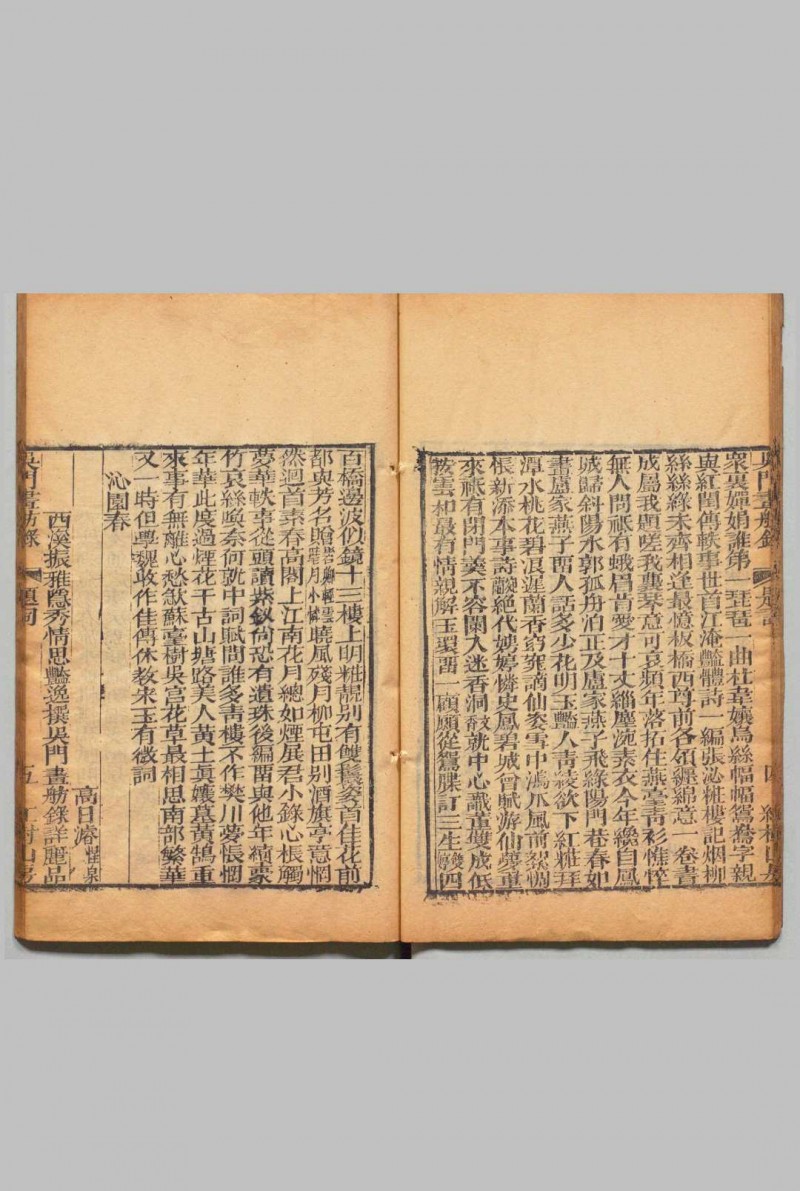 衆裏嬋娟誰第一琵琶一曲杜韋孃烏絲幅幅鴛鴦字親
與紅閨傳軼事世首江淹豔體詩一編張泌糚樓記烟柳
絲絲綠未齊相逢最憶板橋西尊前各領纏綿意一卷書
成屬我題嗟我囊琴意可哀頻年落拓住燕臺靑衫憔悴
無人問祇有蛾眉肯愛才十丈緇塵涴素衣今年纔自鳳
城歸斜陽水郭孤舟泊正及盧家燕子飛綠陽門巷春如
畫盧家燕子兩人話多少花明玉豔人靑綾欲下紅糚拜
潭水桃花碧浪遲蘭香窈窕謫仙姿雪中鴻爪風前
悵新添本事詩 絶代娉婷憐史鳳碧城曾賦游仙夢重
來祇有閉門羹不容闌入迷香洞 就中心識董雙成低
按雲和最有情親解玉環留一 願從鴛牒訂三生 四
百橋邊波似鏡十三樓上明糚靚別有雙鬟 首佳花前
都與芳名贈 曉風殘月柳屯田別酒旗亭意惘
然迴首素春高閣上江南花月總如煙展君小錄心悵觸
夢華軼事從頭讀紫釵尙恐有遺珠後編留與他年續豪
竹哀絲喚奈何就中詞賦問誰多靑樓不作樊川夢悵惘
年華此度過煙花千古山塘路美人黃土眞孃墓黃鵠重
來事有無離心愁歈蘇臺樹吳宮花草最相思南部繁華
又一時但學魏收作佳傳休敎宋玉有微詞
沁園春
高日濬 惺泉
西溪振雅隱秀情思豔逸撰吳門畫舫錄詳麗品
吳門畫舫錄 題詞 五 紅樹山房